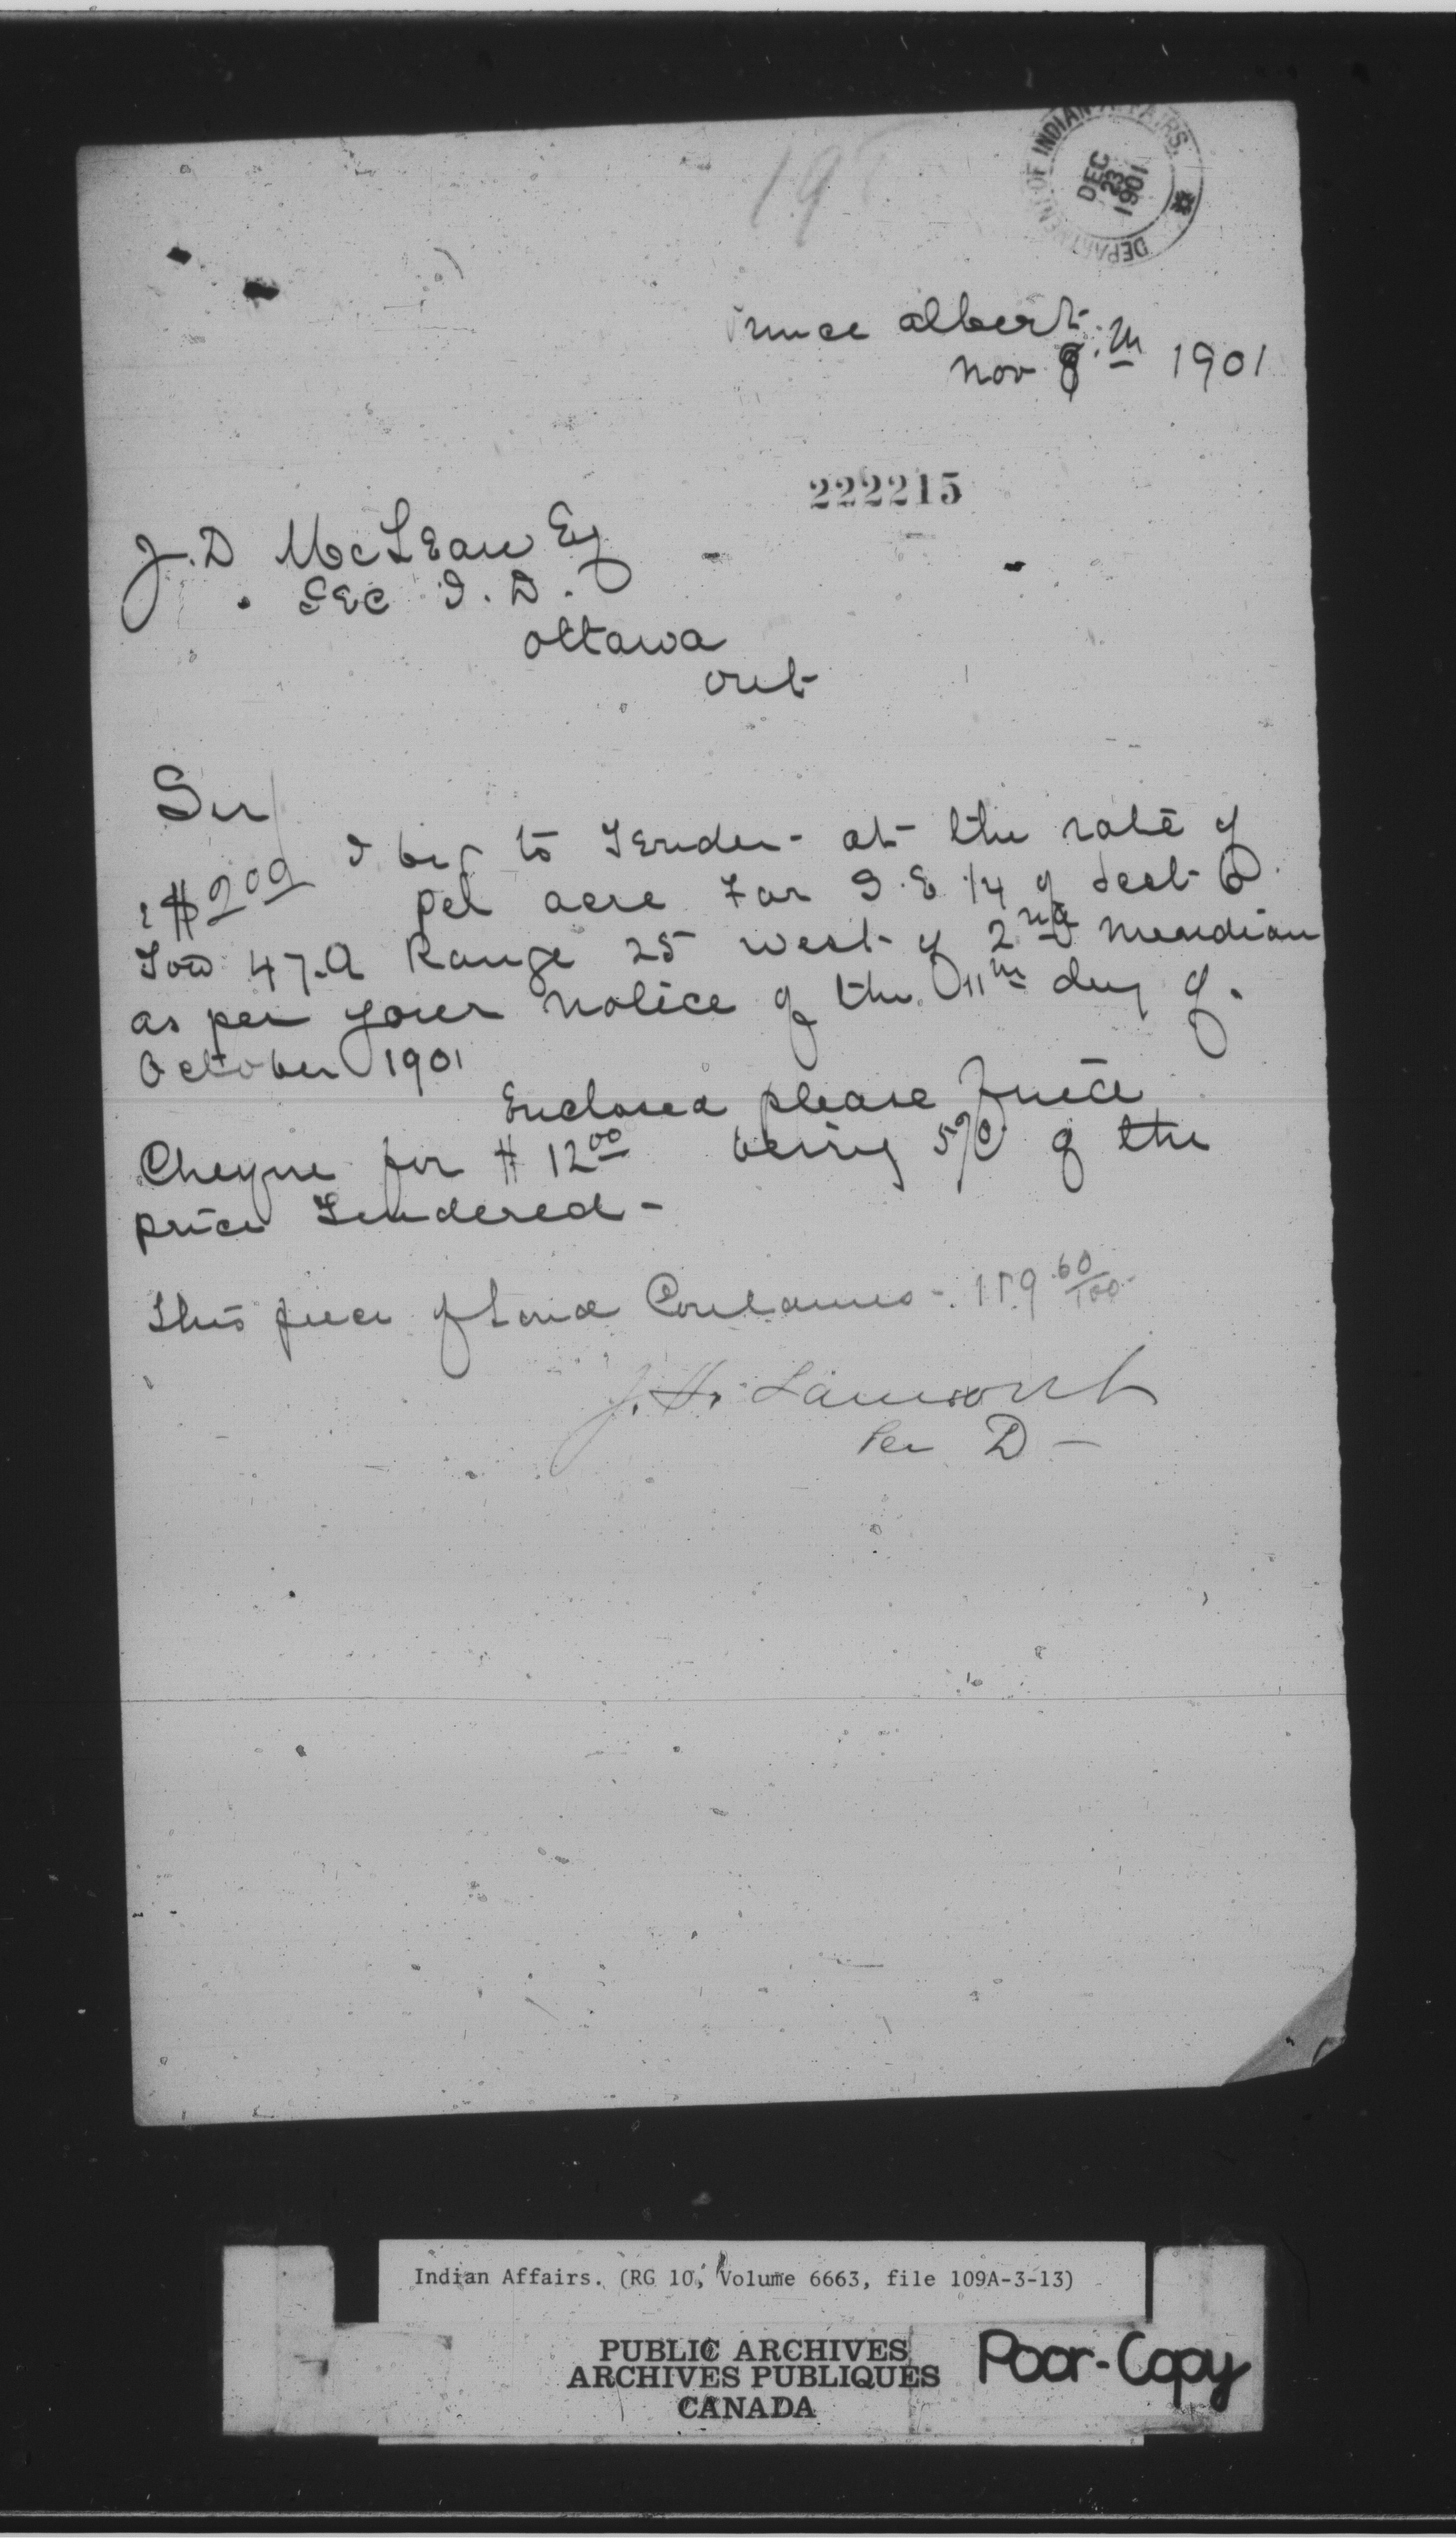 DEPARTMENT OF INDIAN AFFAIRS.
DEC
23
1901
19
Prince albert
Nov 8th 1901
222215
J. D McLean Esq
Sec I. D.
ottawa
ont
Sir
I beg to Tender at the rate of
$2.00 per acre For S. E 1/4 of Sect 6
Tow 47.A Range 25 west of 2nd Meridian
as per your notice of the 11th day of
October 1901
Enclosed please find
Cheque for $12.00 being 5% of the
price Tendered -
This piece of Land Contains - 159 60/100
J. H. Lamont
Per D -
Indian Affairs. (RG 10, Volume 6663, file 109A-3-13)
PUBLIC ARCHIVES
ARCHIVES PUBLIQUES
CANADA
Poor-Copy